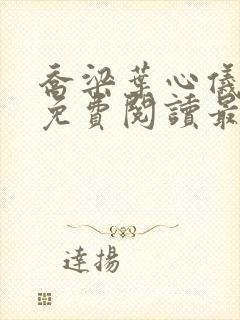 喬梁葉心儀
免費閱讀最
達揚